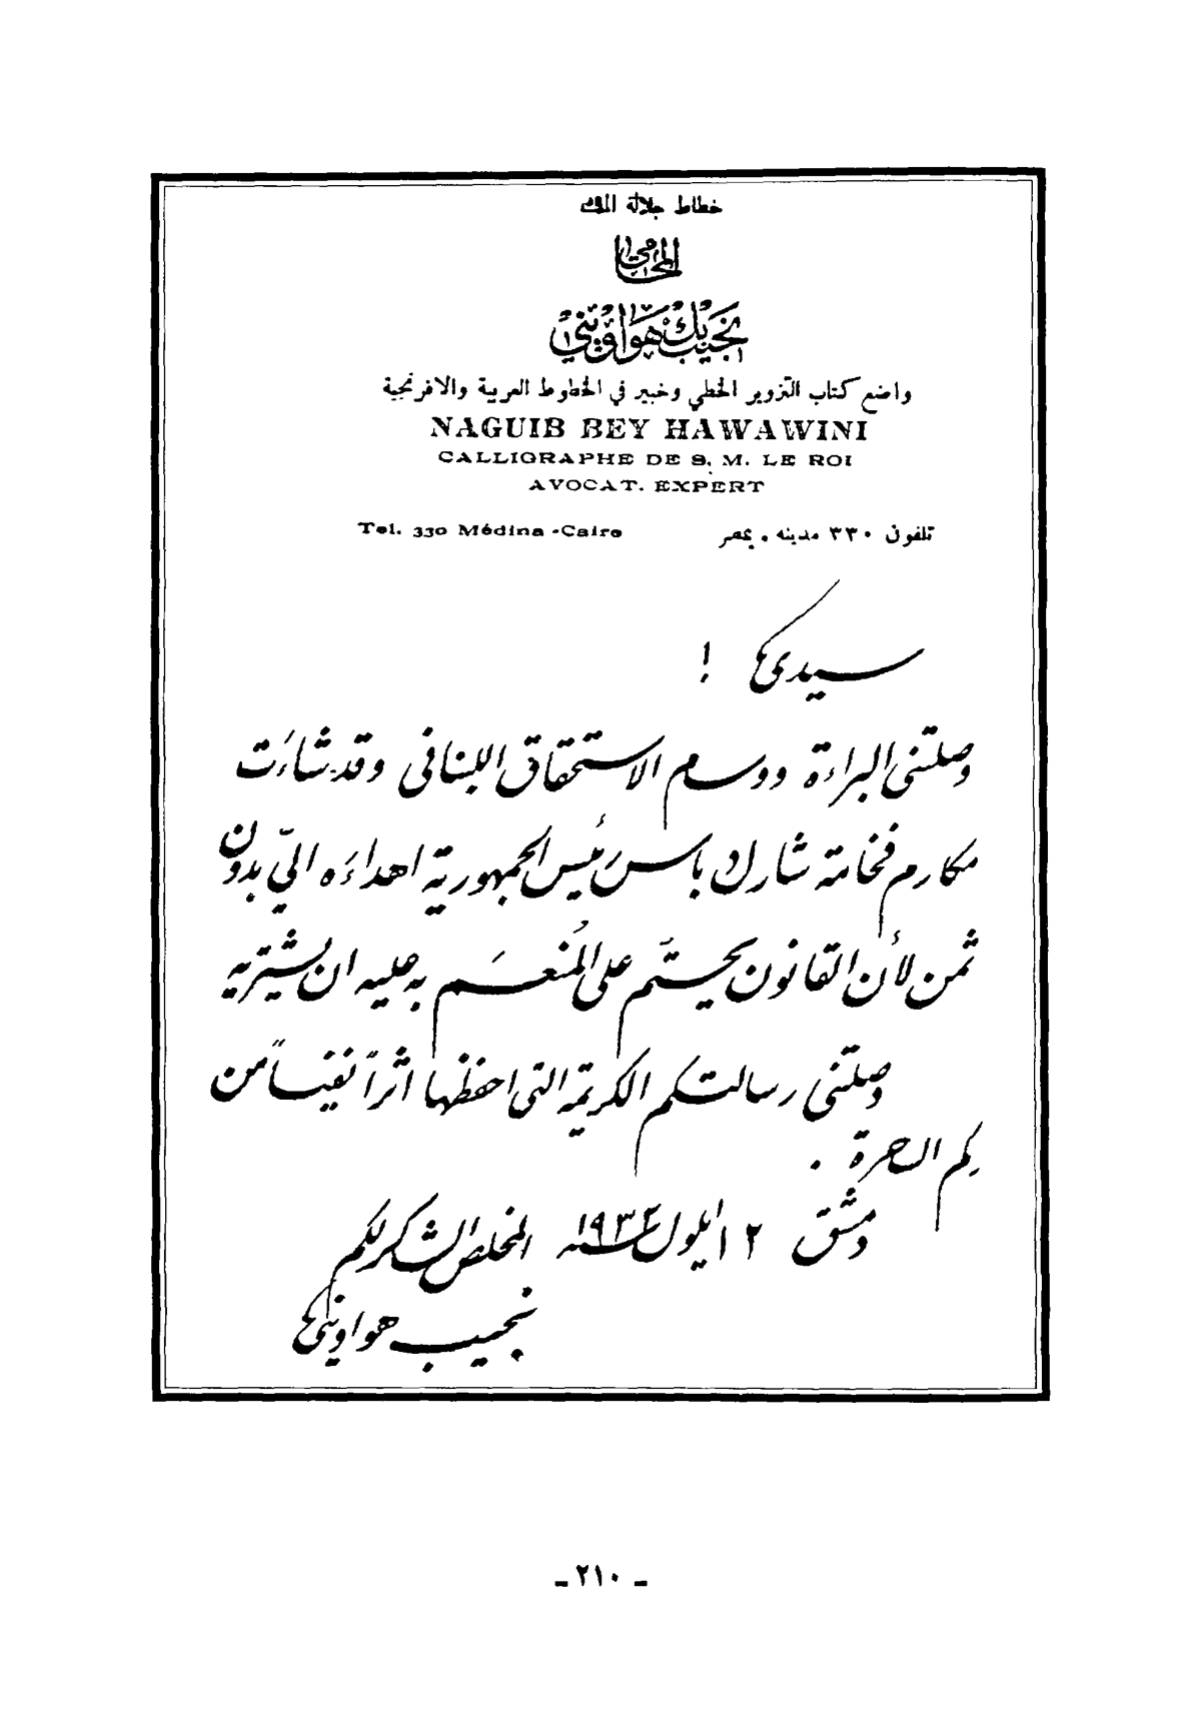 خطاط جلالة الملك
المحامي
نجيب بك هواويني
واضع كتاب التزوير الخطي وخبير في الخطوط العربية والافرنجية
NAGUIB BEY HAWAWINI
CALLIGRAPHE DE S. M. LE ROI
AVOCAT. EXPERT
Tel. 330 Médina - Caire تلفون ٣٣٠ مدينه . بمصر
سيدي !
وصلتني البراءة ووسام الاستحقاق اللبناني وقد شاءَت
مكارم فخامة شارل باس رئيس الجمهورية اهداءَه اليّ بدون
ثمن لأن القانون يحتّم على المُنعَم به عليه ان يشتريه
وصلتني رسالتكم الكريمة التي احفظها اثراً نفيساً من
يدكم .
دمشق ٢ ايلول سنة ١٩٣٢ المخلص الشاكر لكم
نجيب هواويني
- ٢١٠ -